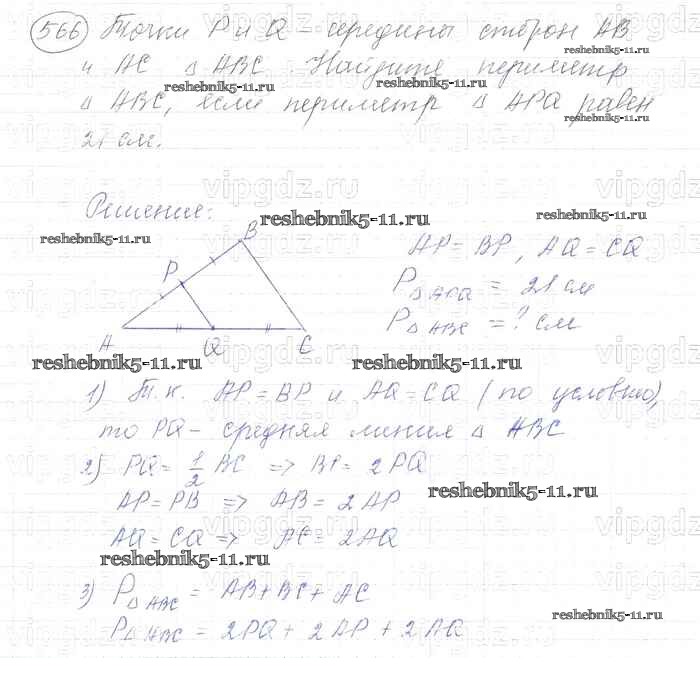 566 Точки P и Q – середины сторон AB
и AC △ ABC. Найдите периметр
△ ABC, если периметр △ APQ равен
21 см.
Решение:
B
P
A
Q
C
AP = BP, AQ = CQ
P△APQ = 21 см
P△ABC = ? см
1) Т.к. AP = BP и AQ = CQ (по условию),
то PQ – средняя линия △ ABC
2) PQ = 1/2 BC => BC = 2PQ
AP = PB => AB = 2AP
AQ = CQ => AC = 2AQ
3) P△ABC = AB + BC + AC
P△ABC = 2PQ + 2AP + 2AQ
reshebnik5-11.ru
reshebnik5-11.ru
reshebnik5-11.ru
reshebnik5-11.ru
reshebnik5-11.ru
reshebnik5-11.ru
reshebnik5-11.ru
reshebnik5-11.ru
reshebnik5-11.ru
reshebnik5-11.ru
reshebnik5-11.ru
reshebnik5-11.ru
reshebnik5-11.ru
vipgdz.ru